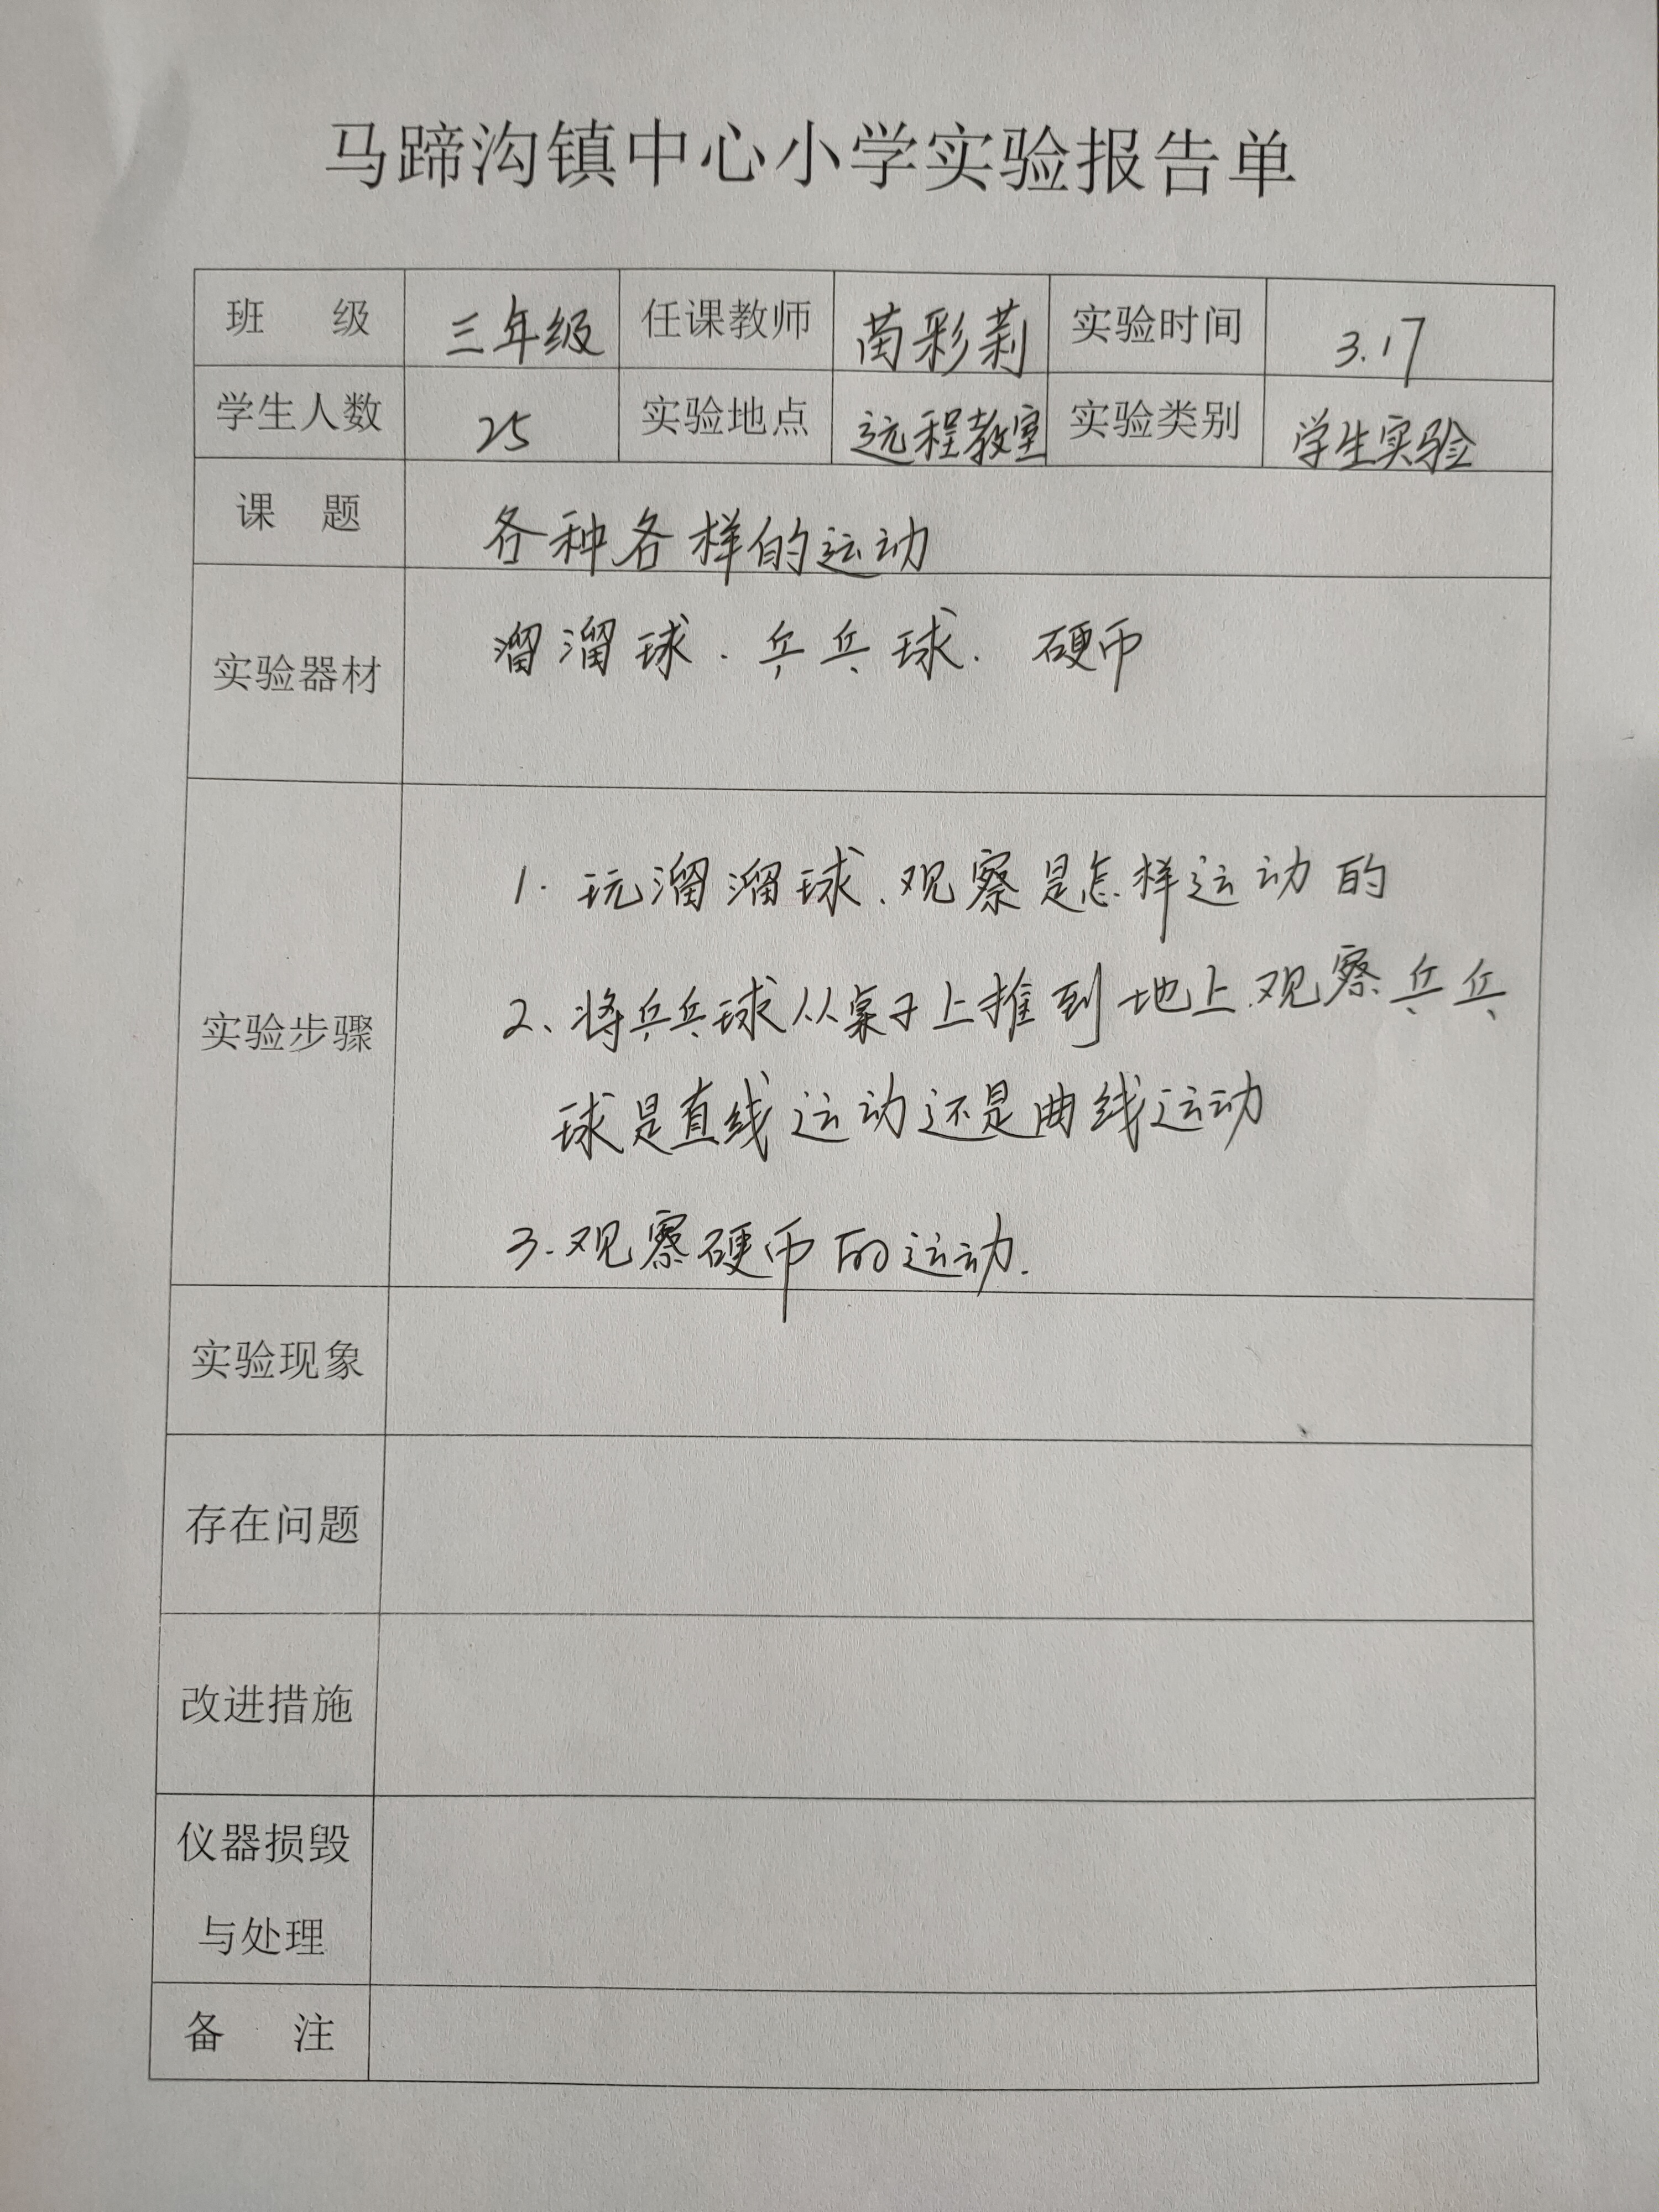 马蹄沟镇中心小学实验报告单
班 级 三年级 任课教师 苗彩莉 实验时间 3.17
学生人数 25 实验地点 远程教室 实验类别 学生实验
课 题 各种各样的运动
实验器材 溜溜球.乒乓球.硬币
实验步骤
1.玩溜溜球.观察是怎样运动的
2、将乒乓球从桌子上推到地上.观察乒乓
球是直线运动还是曲线运动
3.观察硬币的运动.
实验现象
存在问题
改进措施
仪器损毁
与处理
备 注